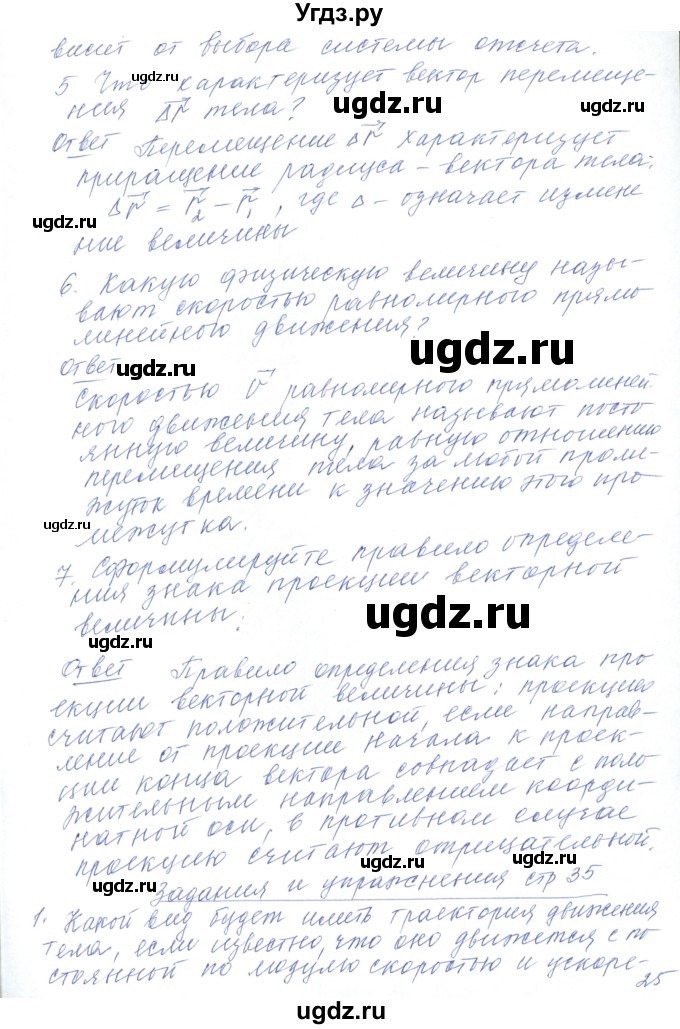 Угдз.ру
висит от выбора системы отсчета.
5 Что характеризует вектор перемеще-
ния Δr⃗ тела?
Ответ Перемещение Δr⃗ характеризует
приращение радиуса-вектора тела:
Δr⃗ = r⃗₂ - r⃗₁, где Δ - означает измене
ние величины
6. Какую физическую величину назы-
вают скоростью равномерного прямо
линейного движения?
Ответ
Скоростью v⃗ равномерного прямолиней
ного движения тела называют посто
янную величину, равную отношению
перемещения тела за любой проме-
жуток времени к значению этого про
межутка.
7. Сформулируйте правило определе-
ния знака проекции векторной
величины.
Ответ Правило определения знака про
екции векторной величины: проекцию
считают положительной, если направ-
ление от проекции начала к проек-
ции конца вектора совпадает с поло
жительным направлением коорди-
натной оси, в противном случае
проекцию считают отрицательной.
Задания и упражнения стр 35
1. Какой вид будет иметь траектория движения
тела, если известно, что оно движется с по
стоянной по модулю скоростью и ускоре-
25
ugdz.ru
ugdz.ru
ugdz.ru
ugdz.ru
ugdz.ru
ugdz.ru
ugdz.ru
ugdz.ru
ugdz.ru
ugdz.ru
ugdz.ru
ugdz.ru
ugdz.ru
ugdz.ru